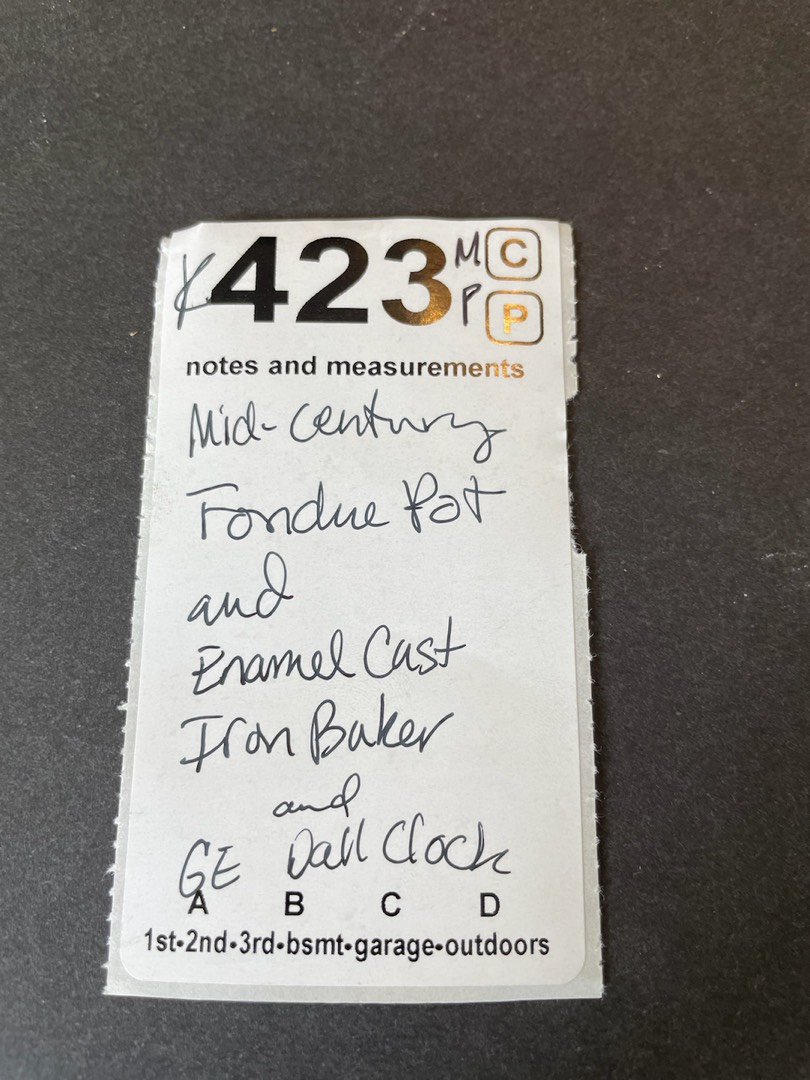 K423 M C
P P
notes and measurements
Mid-Century
Fondue Pot
and
Enamel Cast
Iron Baker
and
GE Wall Clock
A B C D
1st•2nd•3rd•bsmt•garage•outdoors